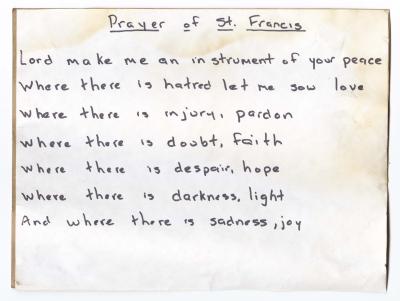 Prayer of St. Francis
Lord make me an instrument of your peace
Where there is hatred let me sow love
Where there is injury, pardon
where there is doubt, faith
where there is despair, hope
where there is darkness, light
And where there is sadness, joy